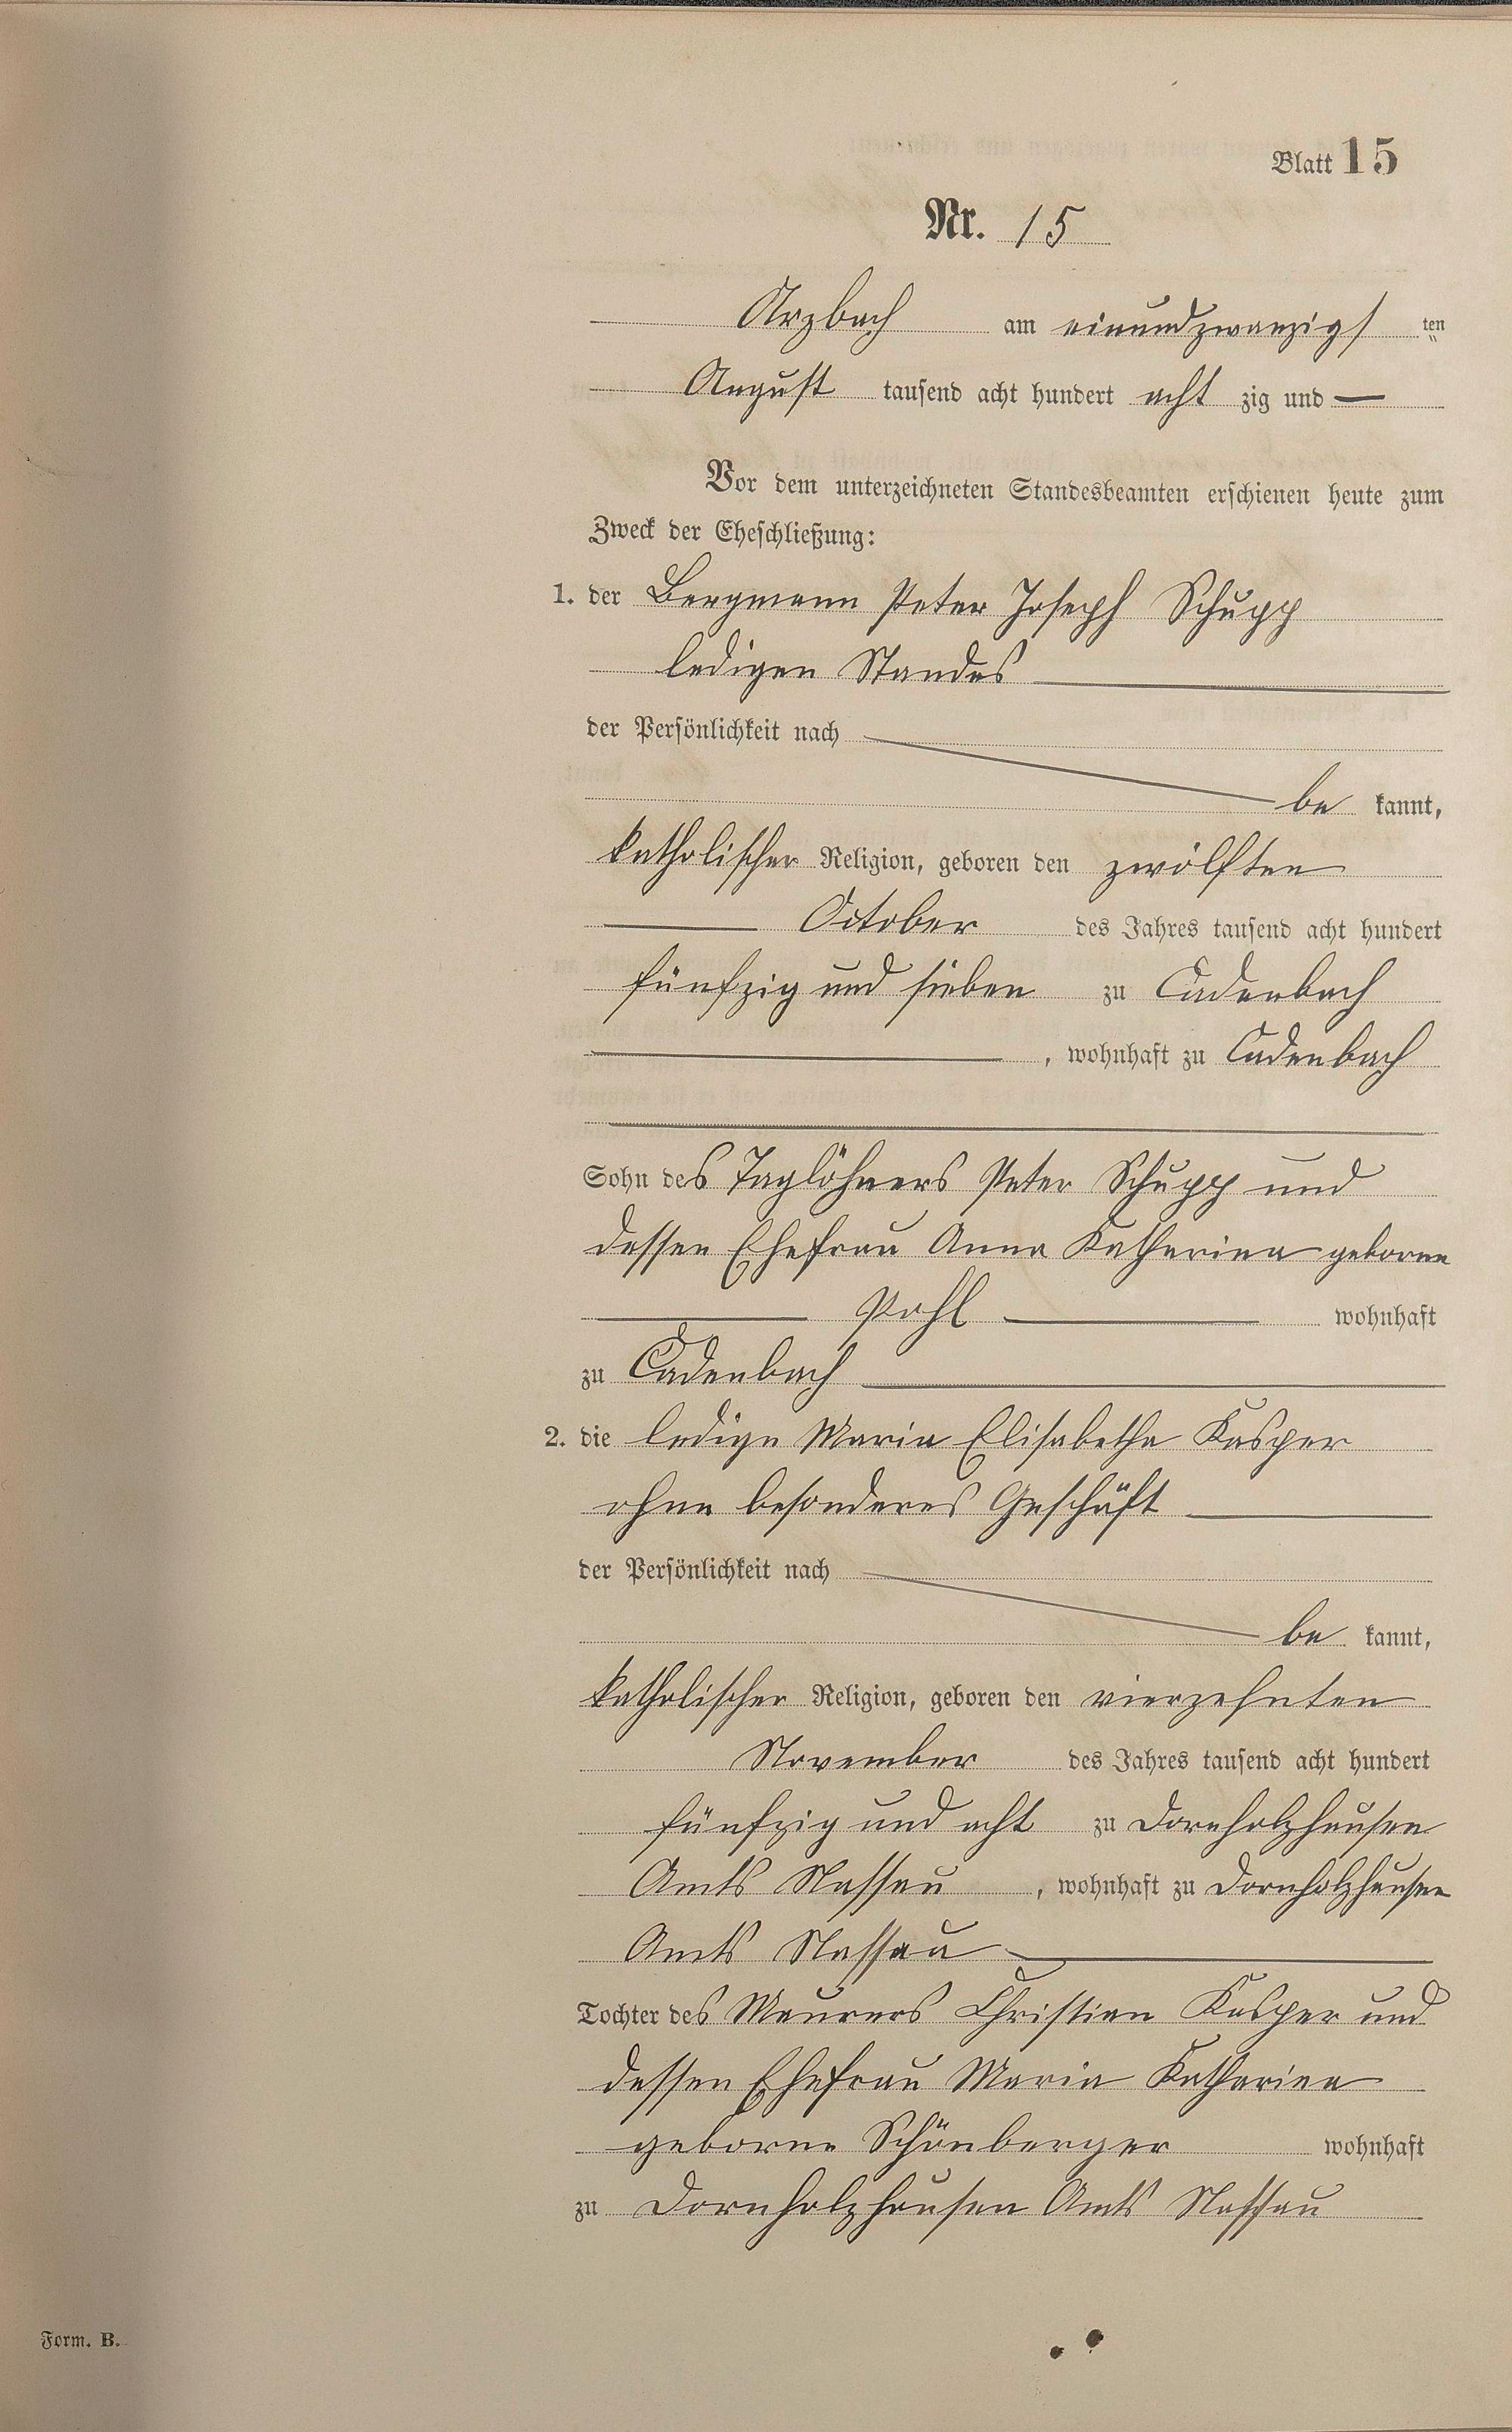 Blatt 15
Nr. 15
Arzbach am einundzwanzigsten
August tausend acht hundert acht zig und —
Vor dem unterzeichneten Standesbeamten erschienen heute zum
Zweck der Eheschließung:
1. der Bergmann Peter Joseph Schupp
ledigen Standes
der Persönlichkeit nach
be kannt,
katholischer Religion, geboren den zwölften
October des Jahres tausend acht hundert
fünfzig und sieben zu Cadenbach
, wohnhaft zu Cadenbach
Sohn des Taglöhners Peter Schupp und
dessen Ehefrau Anna Katharina geborne
Pohl wohnhaft
zu Cadenbach
2. die ledige Maria Elisabetha Kasper
ohne besonderes Geschäft
der Persönlichkeit nach
be kannt,
katholischer Religion, geboren den vierzehnten
November des Jahres tausend acht hundert
fünfzig und acht zu Dornholzhausen
Amts Nassau , wohnhaft zu Dornholzhausen
Amts Nassau
Tochter des Maurers Christian Kasper und
dessen Ehefrau Maria Katharina
geborne Schönberger wohnhaft
zu Dornholzhausen Amts Nassau
Form. B.